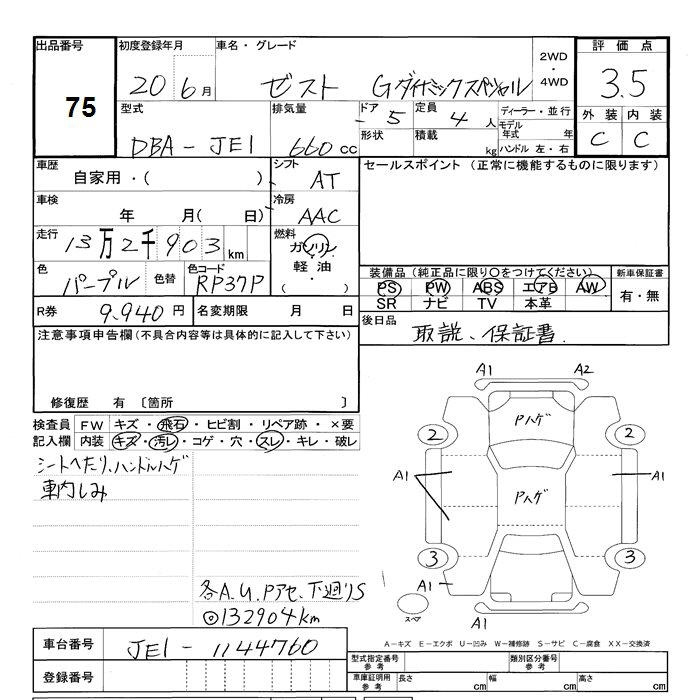 出品番号 初度登録年月 車名・グレード 2WD・4WD 評価点
75 20 6月 ゼスト Gダイナミックスペシャル 3.5
型式 排気量 ドア 定員 ディーラー・並行 外装 内装
DBA-JE1 660cc 5 4人 モデル年式 年 C C
形状 積載 kg ハンドル 左・右
車歴 シフト セールスポイント(正常に機能するものに限ります)
自家用・( ) AT
車検 冷房
年 月( 日) AAC
走行 燃料
13万2千903km ガソリン
軽油
・
色 色替 色コード 装備品(純正品に限り○をつけてください) 新車保証書
パープル RP37P PS PW ABS エアB AW 有・無
SR ナビ TV 本革
R券 9,940円 名変期限 月 日 後日品
取説、保証書.
注意事項申告欄(不具合内容等は具体的に記入して下さい)
修復歴 有 〔箇所 〕
検査員 FW キズ・飛石・ヒビ割・リペア跡・×要
記入欄 内装 キズ・汚レ・コゲ・穴・スレ・キレ・破レ
シートへたり、ハンドルハゲ
車内しみ
各A.U.Pアセ、下廻りS
◎132904km
A1 A2
Pハゲ
2 2
A1 Pハゲ A1
3 3
A1
スペア A1
A-キズ E-エクボ U-凹み W-補修跡 S-サビ C-腐食 XX-交換済
車台番号 JE1-1144760 型式指定番号 参考 類別区分番号 参考
登録番号 車庫証明用 参考 長さ cm 幅 cm 高さ cm